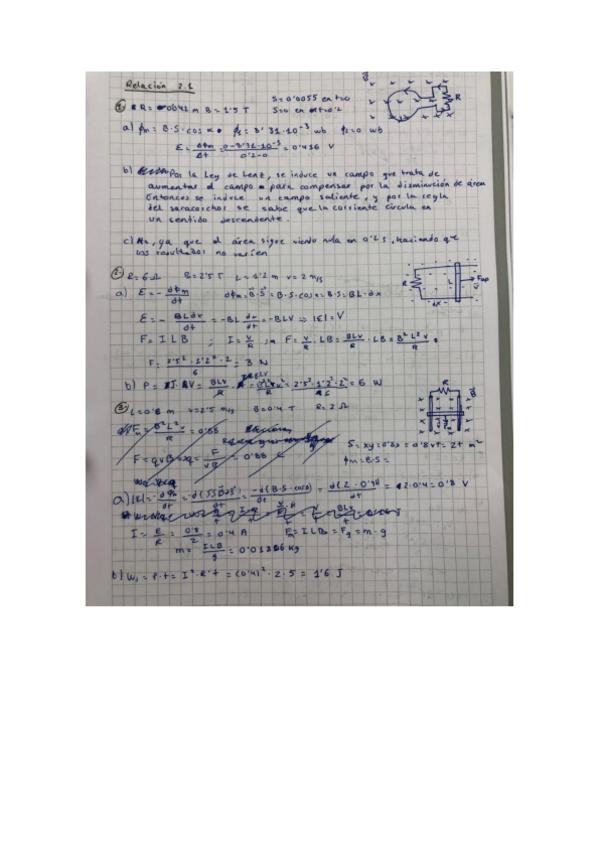 Relación 2.1
1. R = 0'042 m B = 1'5 T
S = 0'0055 en t=0
S=0 en t=0'2
R
a) ϕm = B·S·cos α ϕ1 = 8'31·10⁻³ wb ϕ2 = 0 wb
E = Δϕm/Δt = 0-8'31·10⁻³/0'2-0 = 0'416 V
b) Por la Ley de Lenz, se induce un campo que trata de
aumentar el campo para compensar por la disminución de área
Entonces se induce un campo saliente, y por la regla
del sacacorchos se sabe que la corriente circula en
un sentido descendente.
c) No, ya que el área sigue siendo nula en 0'2 s, haciendo que
los resultados no varíen
2. R = 6 Ω B = 2'5 T L = 1'2 m v = 2 m/s
a) E = - dϕm/dt dϕm = B·S = B·S·cos α = B·S = BL·dx
E = - BLdx/dt = -BL dx/dt = -BLV => |E| = V
F = I L B ; I = V/R ; F = V/R · LB = BLv/R · LB = B² L² v/R
F = 2'5² · 1'2² · 2/6 = 3 N
R
L
dx
b) P =
= 6 W
3. L = 0'8 m v = 2'5 m/s B = 0'4 T R = 2 Ω
R
S = xy = 0'8x = 0'8vt = 2t m²
ϕm = B·S =
a) |E| = -dϕm/dt
= -d(B·S·cos α)/dt = d(2·0'4t)/dt = 2·0'4 = 0'8 V
I = E/R = 0'8/2 = 0'4 A Fm = I L B = Fg = m·g
m = ILB/g
b) W1 = P·t = I²·R·t = (0'4)²·2·5 = 1'6 J